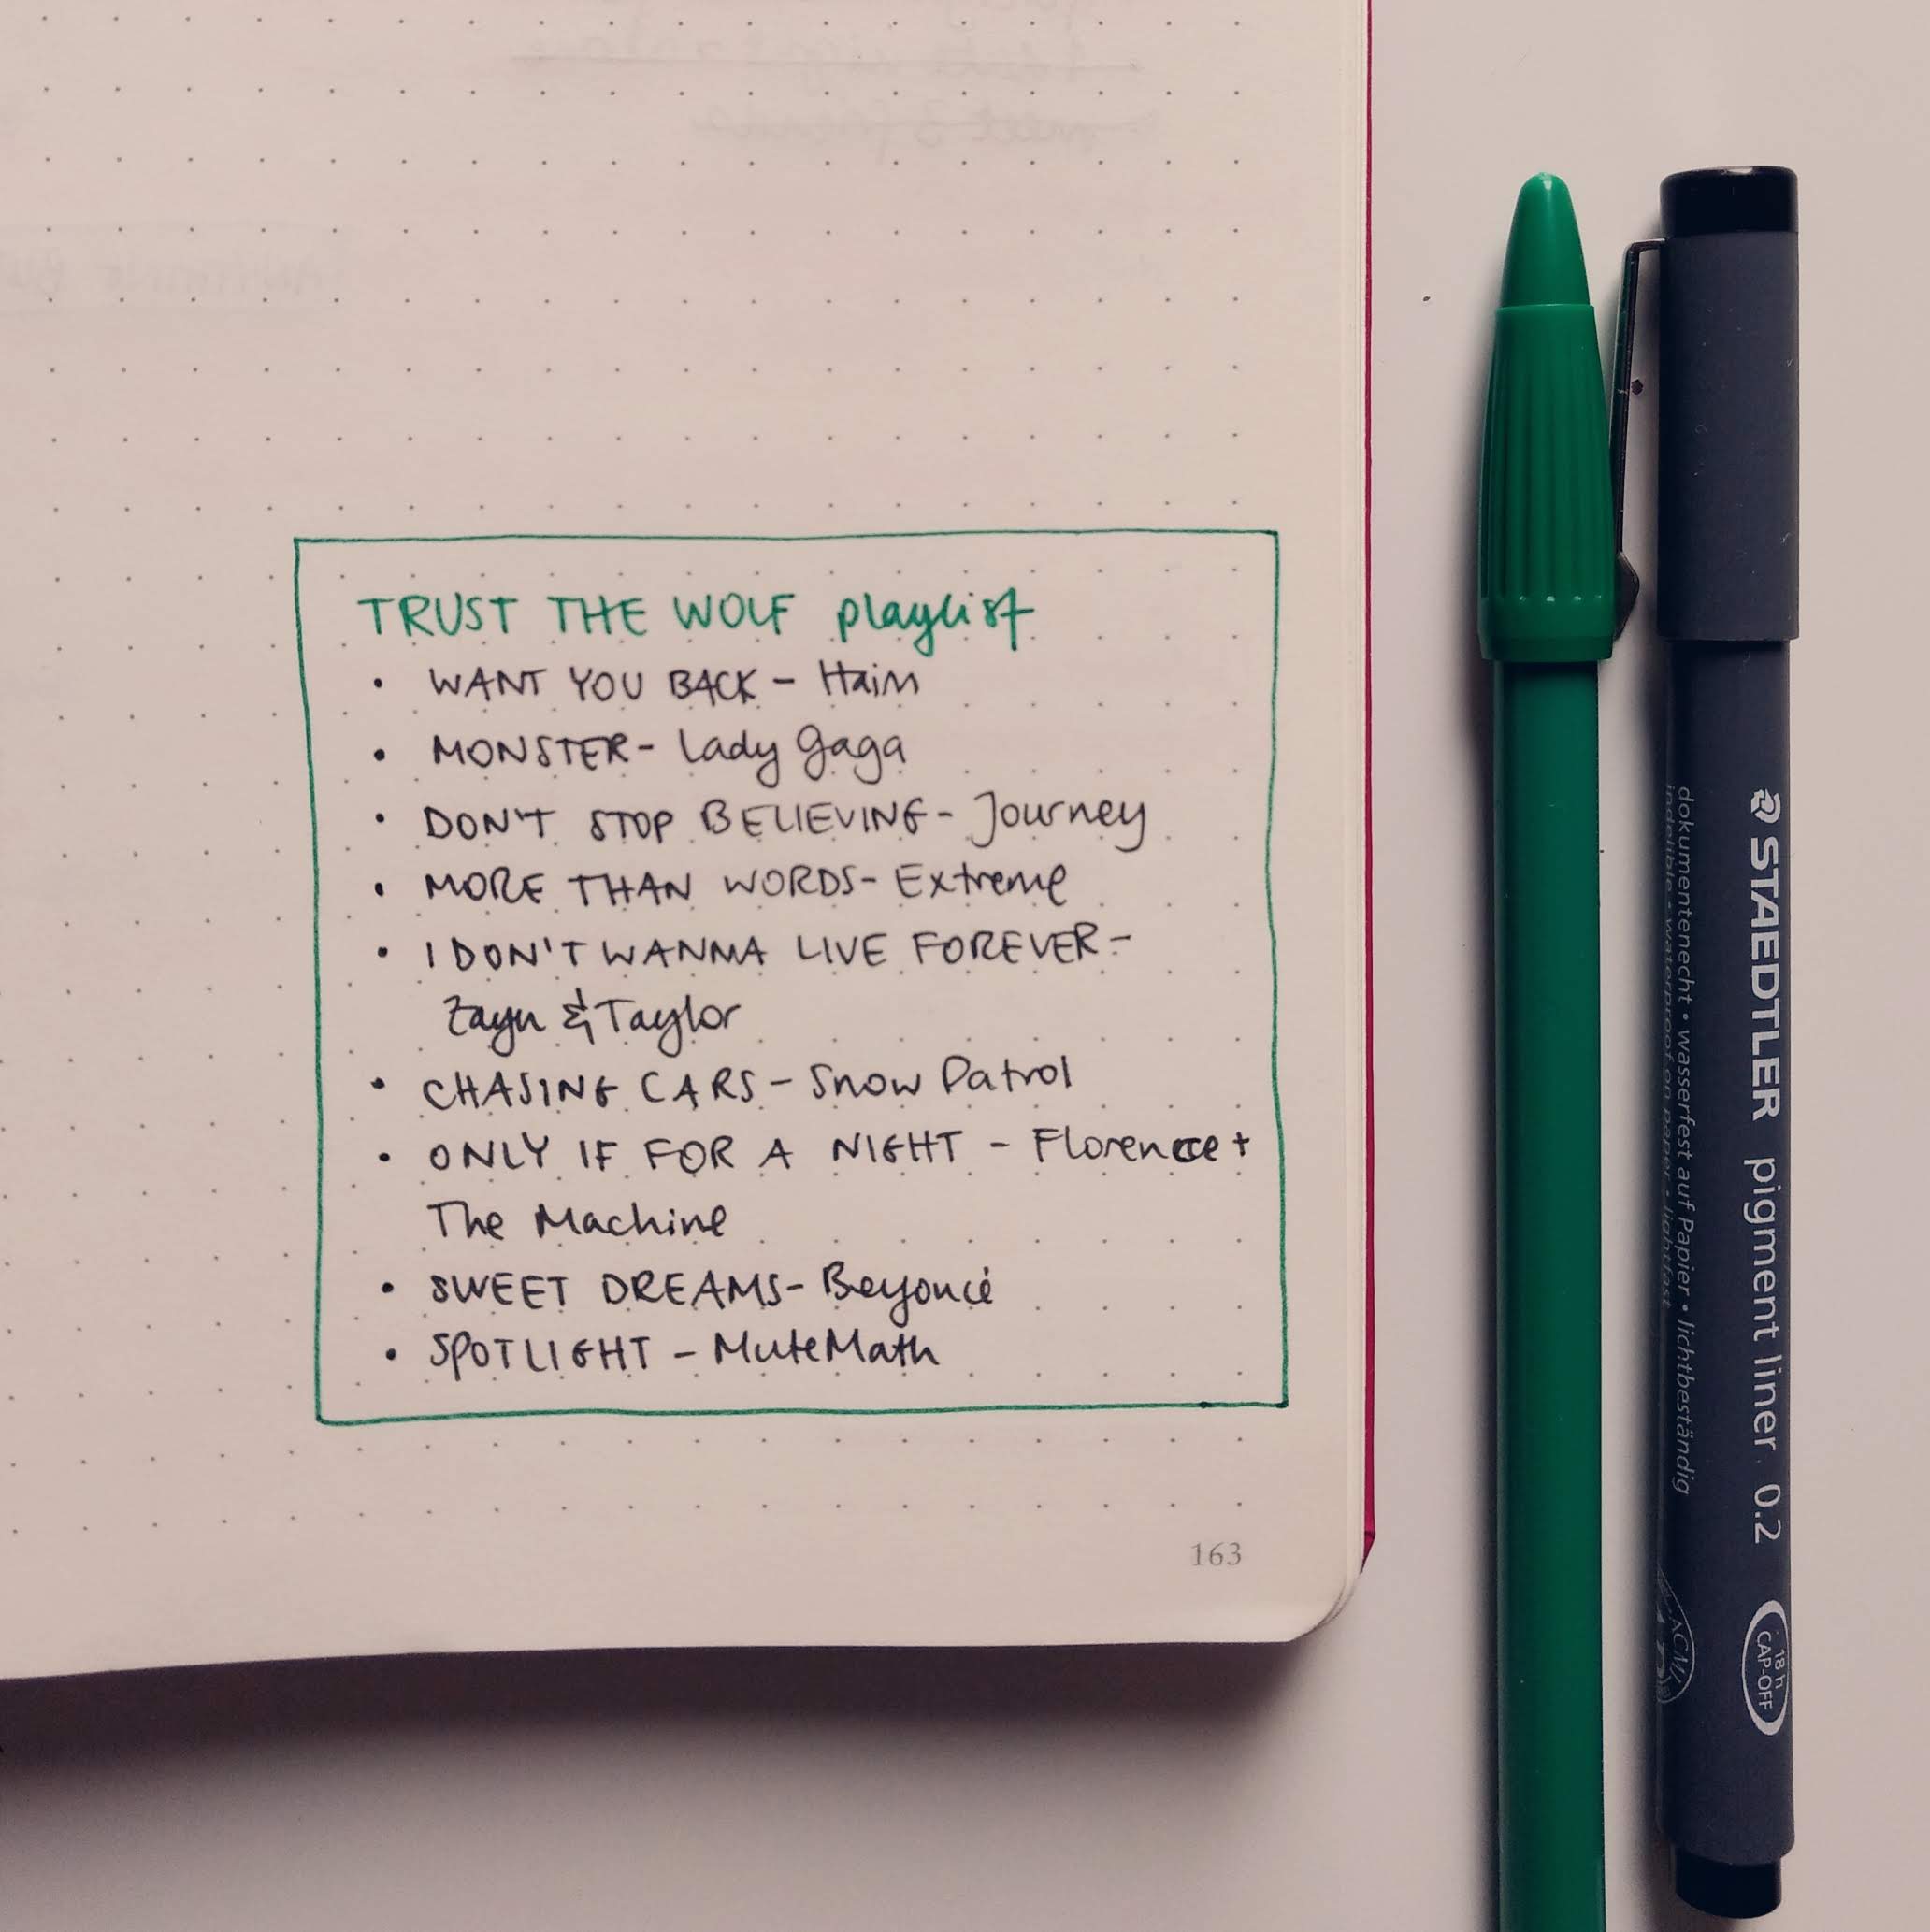 TRUST THE WOLF playlist
• WANT YOU BACK - Haim
• MONSTER - Lady Gaga
• DON'T STOP BELIEVING - Journey
• MORE THAN WORDS - Extreme
• I DON'T WANNA LIVE FOREVER -
Zayn & Taylor
• CHASING CARS - Snow Patrol
• ONLY IF FOR A NIGHT - Florence +
The Machine
• SWEET DREAMS - Beyoncé
• SPOTLIGHT - MuteMath
163
STAEDTLER pigment liner 0.2
18 h
CAP-OFF
dokumentenecht • wasserfest auf Papier • lichtbeständig
indelible • waterproof on paper • lightfast
ACMI